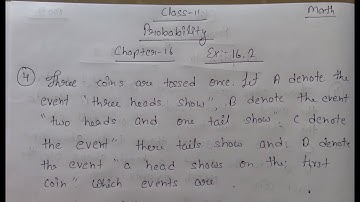 Class-11 Math
Probability
Chapter-16 Ex:-16.2
4 Three coins are tossed once. Let A denote the
event "three heads show", B denote the event
"two heads and one tail show", C denote
the event" three tails show and D denote
the event "a head shows on the first
coin" Which events are